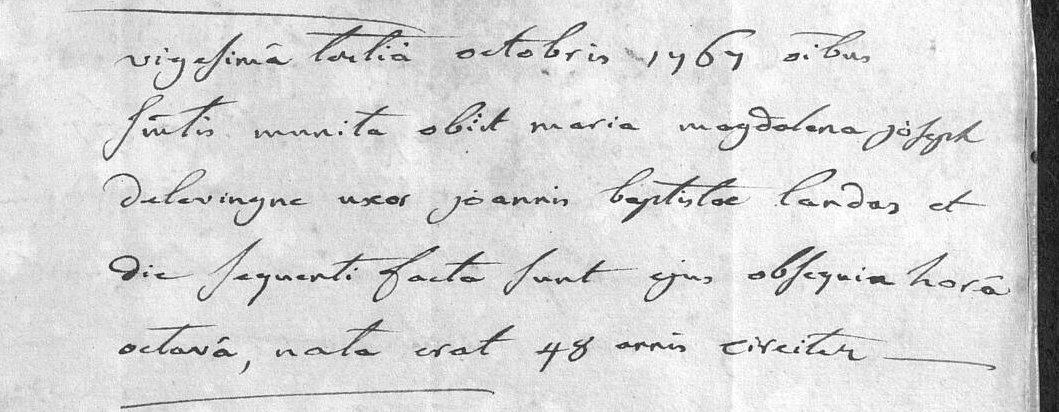 vigesimâ tertiâ octobris 1767 oibus
smtis munita obiit maria magdalena joseph
delevingne uxor joannis baptistae landas et
die sequenti facta sunt ejus obsequia horâ
octavâ, nata erat 48 annis circiter